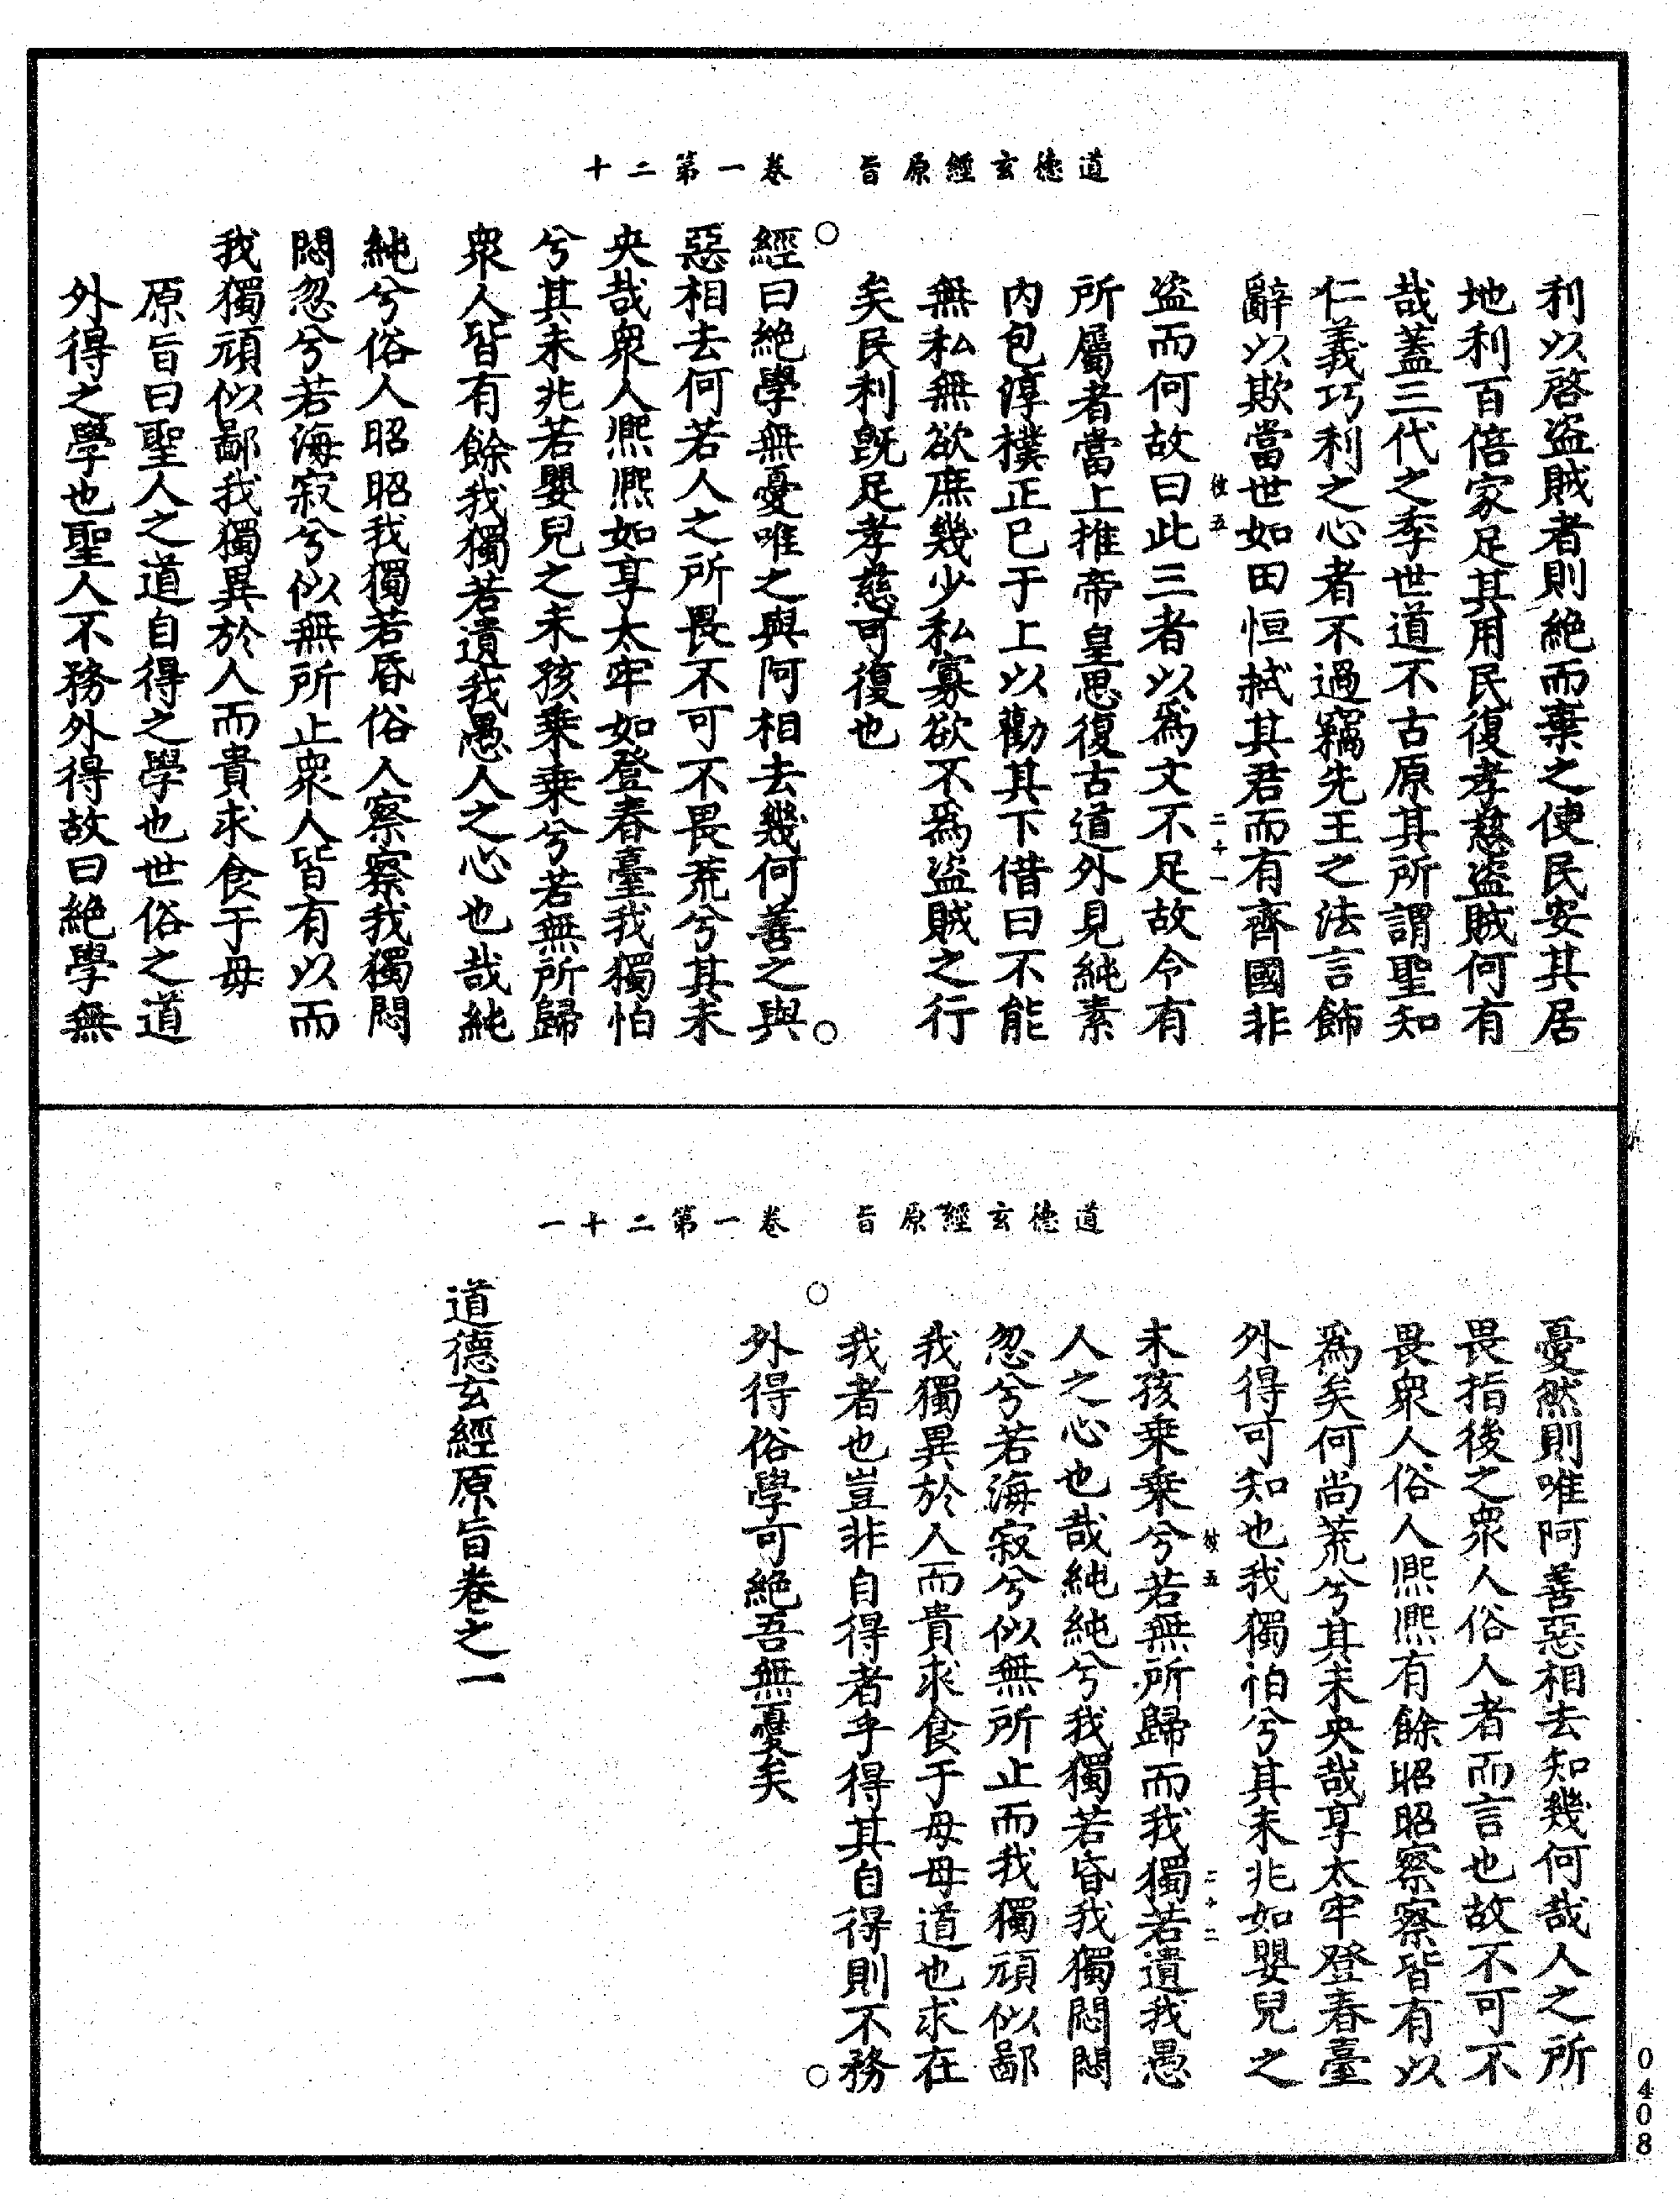 道德玄經原旨　卷一第二十
利以啓盜賊者則絕而棄之使民安其居
地利百倍家足其用民復孝慈盜賊何有
哉蓋三代之季世道不古原其所謂聖知
仁義巧利之心者不過竊先王之法言飾
辭以欺當世如田恒弒其君而有齊國非
彼五　二十一
盜而何故曰此三者以為文不足故令有
所屬者當上推帝皇思復古道外見純素
內包淳樸正已于上以勸其下借曰不能
無私無欲庶幾少私寡欲不為盜賊之行
矣民利旣足孝慈可復也
經曰絕學無憂唯之與阿相去幾何善之與
惡相去何若人之所畏不可不畏荒兮其未
央哉衆人熙熙如享太牢如登春臺我獨怕
兮其未兆若嬰兒之未孩乗乗兮若無所歸
衆人皆有餘我獨若遺我愚人之心也哉純
純兮俗人昭昭我獨若昏俗人察察我獨悶
悶忽兮若海寂兮似無所止衆人皆有以而
我獨頑似鄙我獨異於人而貴求食于母
原旨曰聖人之道自得之學也世俗之道
外得之學也聖人不務外得故曰絕學無
道德玄經原旨　卷一第二十一
憂然則唯阿善惡相去知幾何哉人之所
畏指後之衆人俗人者而言也故不可不
畏衆人俗人熙熙有餘昭昭察察皆有以
為矣何尚荒兮其未央哉享太牢登春臺
外得可知也我獨怕兮其未兆如嬰兒之
彼五　二十二
未孩乗乗兮若無所歸而我獨若遺我愚
人之心也哉純純兮我獨若昏我獨悶悶
忽兮若海寂兮似無所止而我獨頑似鄙
我獨異於人而貴求食于母母道也求在
我者也豈非自得者乎得其自得則不務
外得俗學可絕吾無憂矣
道德玄經原旨卷之一
0408